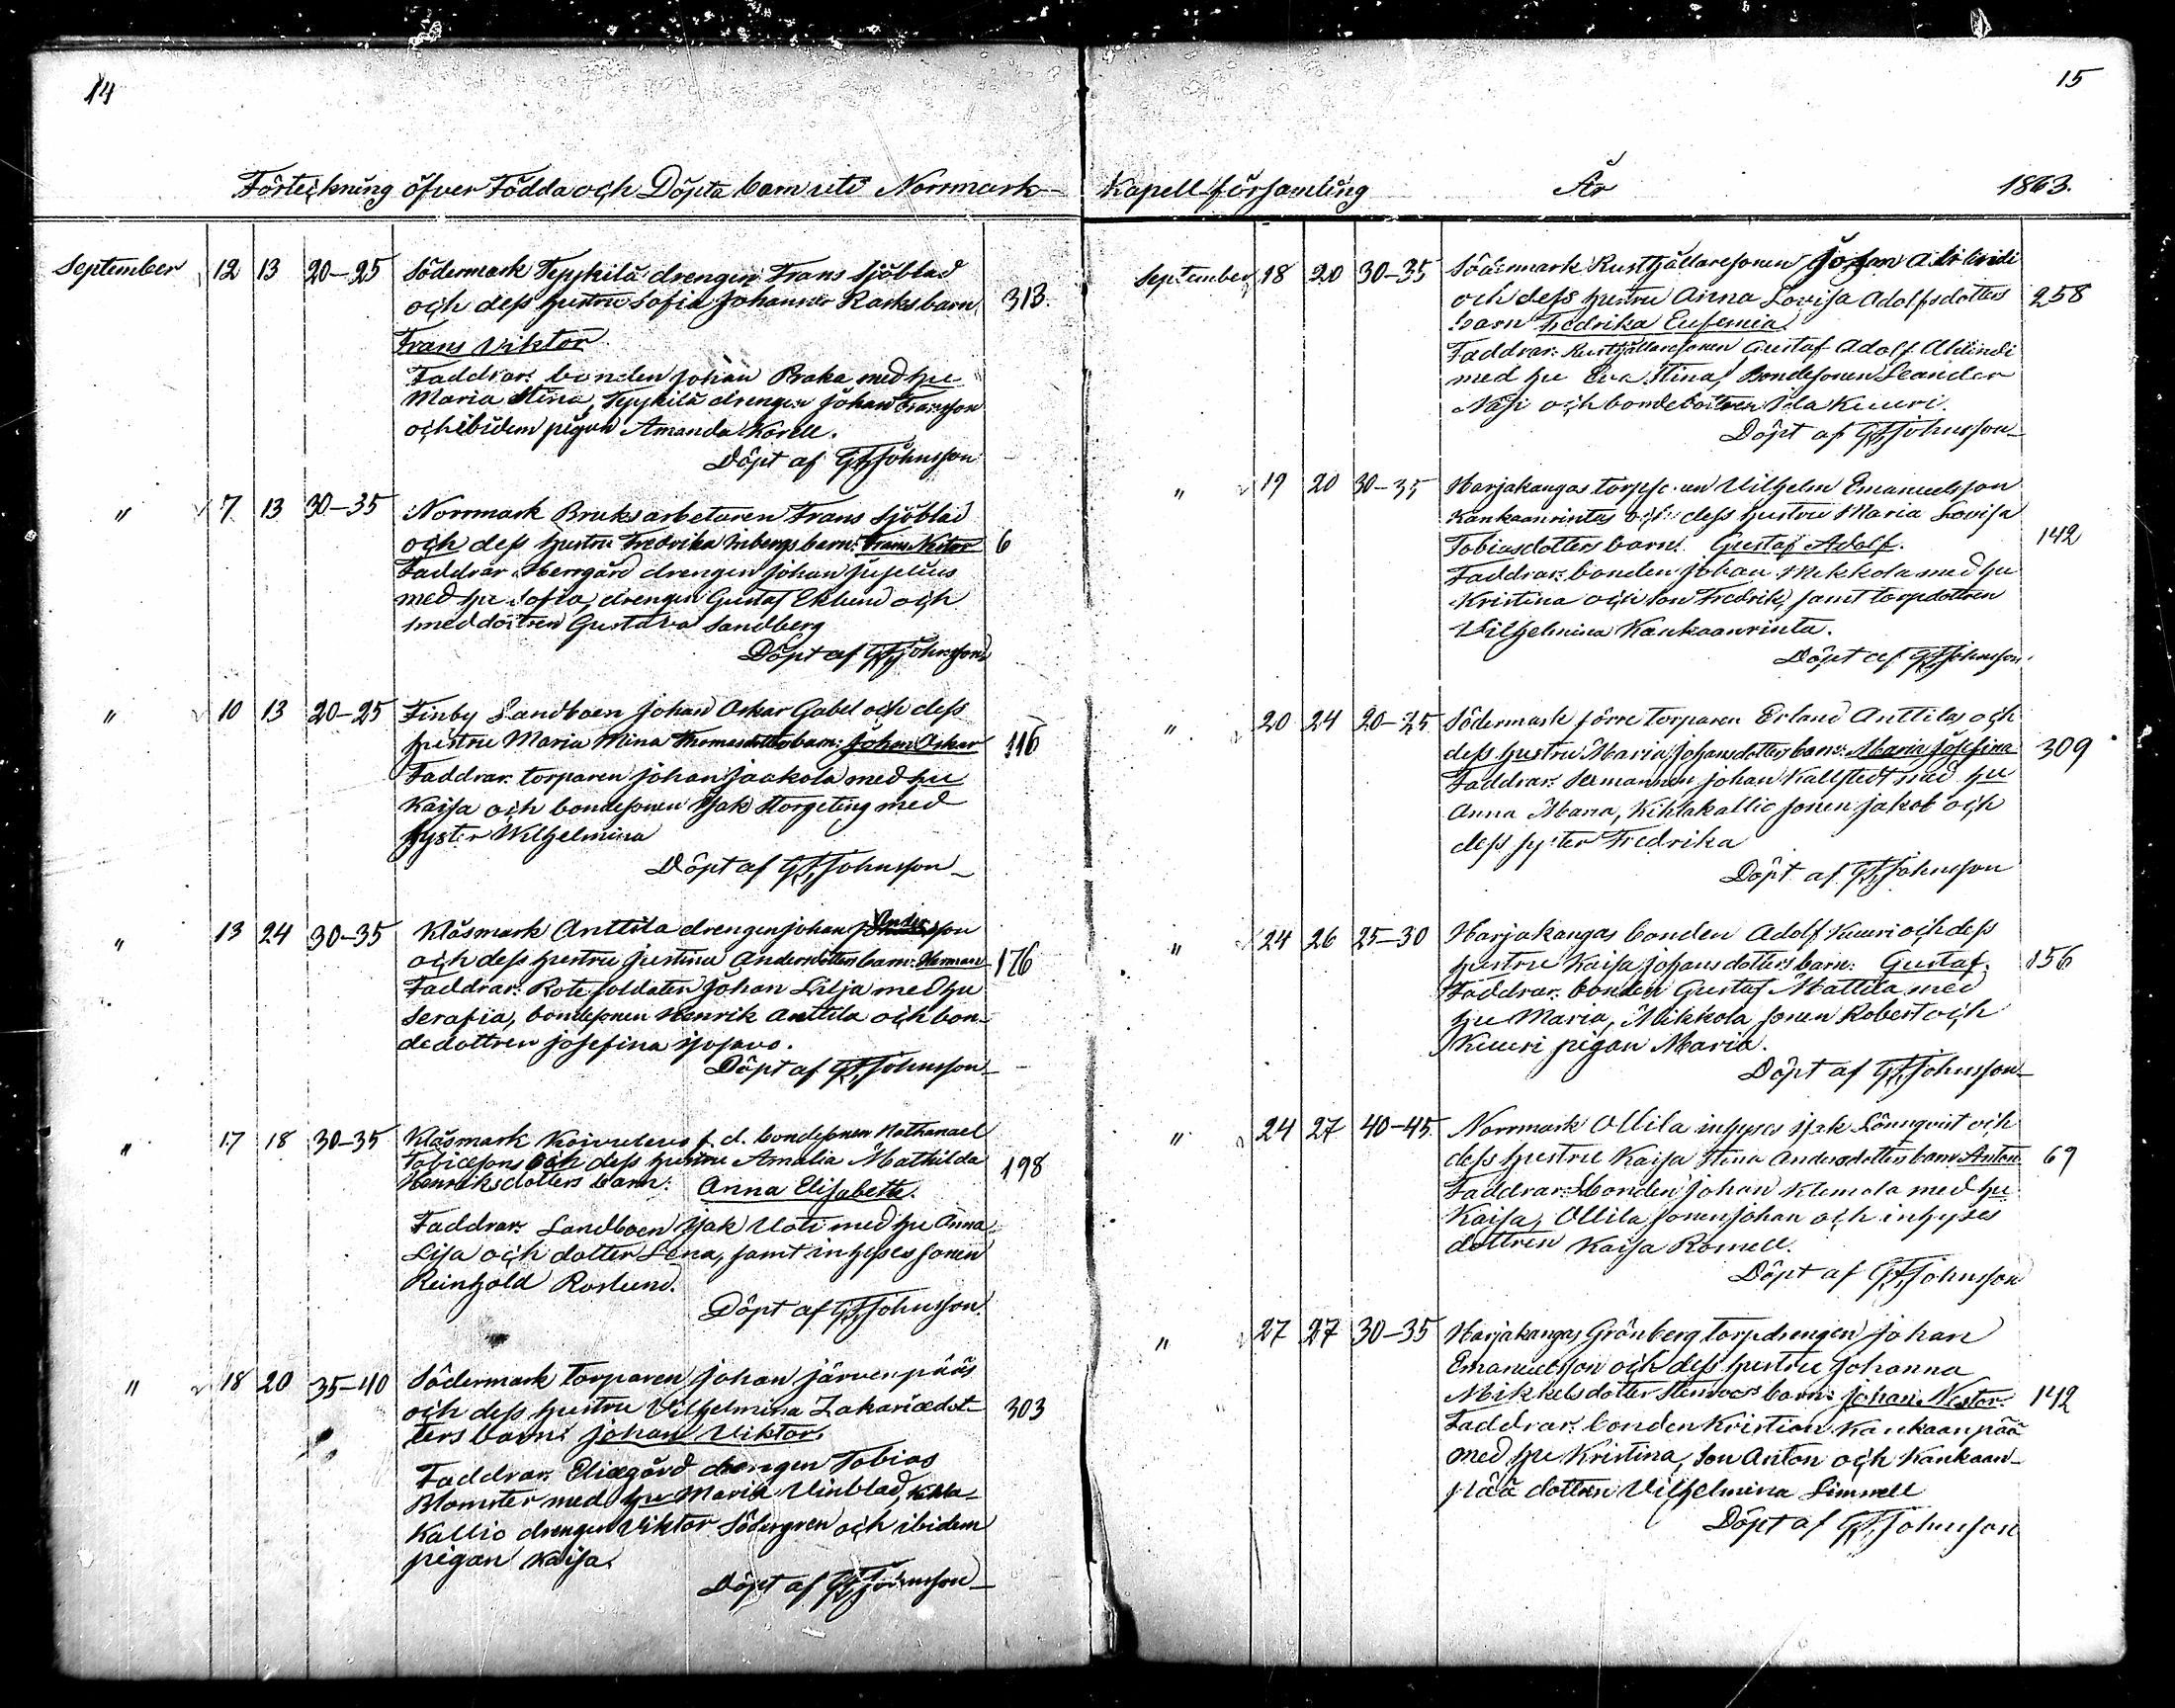 14
Förteckning öfver Födda och Döpta barn uti Norrmark
September 12 13 20-25 Södermark Tyykilä drengen Frans Sjöblad
och dess hustru Sofia Johanna Racks barn 313.
Frans Viktor.
Faddrar: bonden Johan Braka med hu
Maria Stina, Tyykilä drengen Johan Fransson
och ibidem pigan Amanda Korell.
Döpt af GF Johnsson
" 7 13 30-35 Norrmark Bruksarbetaren Frans Sjöblad
och dess hustru Fredrika barn: Frans Nestor 6
Faddrar: Herrgård drengen Johan
med hu Sofia, drengen Gustaf Eklund och
smeddottren Gustava Sandberg
Döpt af GF Johnsson
" 10 13 20-25 Finby Landboen Johan Oskar Gabel och dess
hustru Maria Mina Thomasdotters barn: Johan Oskar 116
Faddrar: torparen Johan Jaakola med hu
Kaisa och bondesonen Isak Storgeting med
syster Wilhelmina
Döpt af GF Johnsson
" 13 24 30-35 Klåsmark Anttila drengen Johan Andersson
och dess hustru Justina Andersdotters barn: Herman 176
Faddrar: Rotesoldaten Johan Lilja med hu
Serafia, bondesonen Henrik Anttila och bon-
dedottren Josefina
Döpt af GF Johnsson
" 17 18 30-35 Klåsmark Koivuluus f.d. bondesonen Nathanael
Tobiæsons och dess hustru Amalia Mathilda
Henriksdotters barn: Anna Elisabeth. 198
Faddrar: Landboen Isak Uoti med hu Anna
Lisa och dotter Lena, samt inhyses sonen
Reinhold Roslund.
Döpt af GF Johnsson.
" 18 20 35-40 Södermark torparen Johan Järvenpääs
och dess hustru Vilhelmina Zakariædot- 303
ters barn: Johan Viktor.
Faddrar: Eliægård drengen Tobias
Blomster med hu Maria Vinblad, Kihla-
kallio drengen Viktor Södergren och ibidem
pigan Kaisa.
Döpt af GF Johnsson
15
Kapell församling År 1863.
September 18 20 30-35 Södermark Rusthållaresonen Johan Ahlindi
och dess hustru Anna Lovisa Adolfsdotters 258
barn Fredrika Eufemia.
Faddrar: Rusthållaresonen Gustaf Adolf Ahlindi
med hu Eva Stina, Bondesonen Leander
Näsi och bondedottren Ida Kuuri.
Döpt af GF Johnsson
" 19 20 30-35 Harjakangas torpsonen Vilhelm Emanuelsson
Kankaanrintas och dess hustru Maria Lovisa
Tobiasdotters barn: Gustaf Adolf. 142
Faddrar: bonden Johan Mikkola med hu
Kristina och son Fredrik, samt torpdottren
Vilhelmina Kankaanrinta.
Döpt af GF Johnsson.
" 20 24 20-25 Södermark förre torparen Erland Anttilas och
dess hustru Maria Johansdotters barn: Maria Josefina 309
Faddrar: Sermannen Johan Kallstedt med hu
Anna Maria, Kihlakallio sonen Jakob och
dess syster Fredrika
Döpt af GF Johnsson
" 24 26 25-30 Harjakangas bonden Adolf Kuuri och dess
hustru Kaisa Johansdotters barn: Gustaf. 156
Faddrar: bonden Gustaf Mattila med
hu Maria, Mikkola sonen Robert och
Kuuri pigan Maria.
Döpt af GF Johnsson
" 24 27 40-45. Norrmark Ollila inhyses Isak Lönnqvist och
dess hustru Kaisa Stina Andersdotters barn: Anton 69
Faddrar: bonden Johan Klemola med hu
Kaisa, Ollila sonen Johan och inhyses
dottren Kaisa Romell.
Döpt af GF Johnsson
" 27 27 30-35 Harjakangas Grönberg torpdrengen Johan
Emanuelsson och dess hustru Johanna
Mikkelsdotter Stenroos barn: Johan Nestor. 142
Faddrar: bonden Kristian Kankaanpää
med hu Kristina, son Anton och Kankaan-
pää dottren Vilhelmina Limnell
Döpt af GF Johnsson